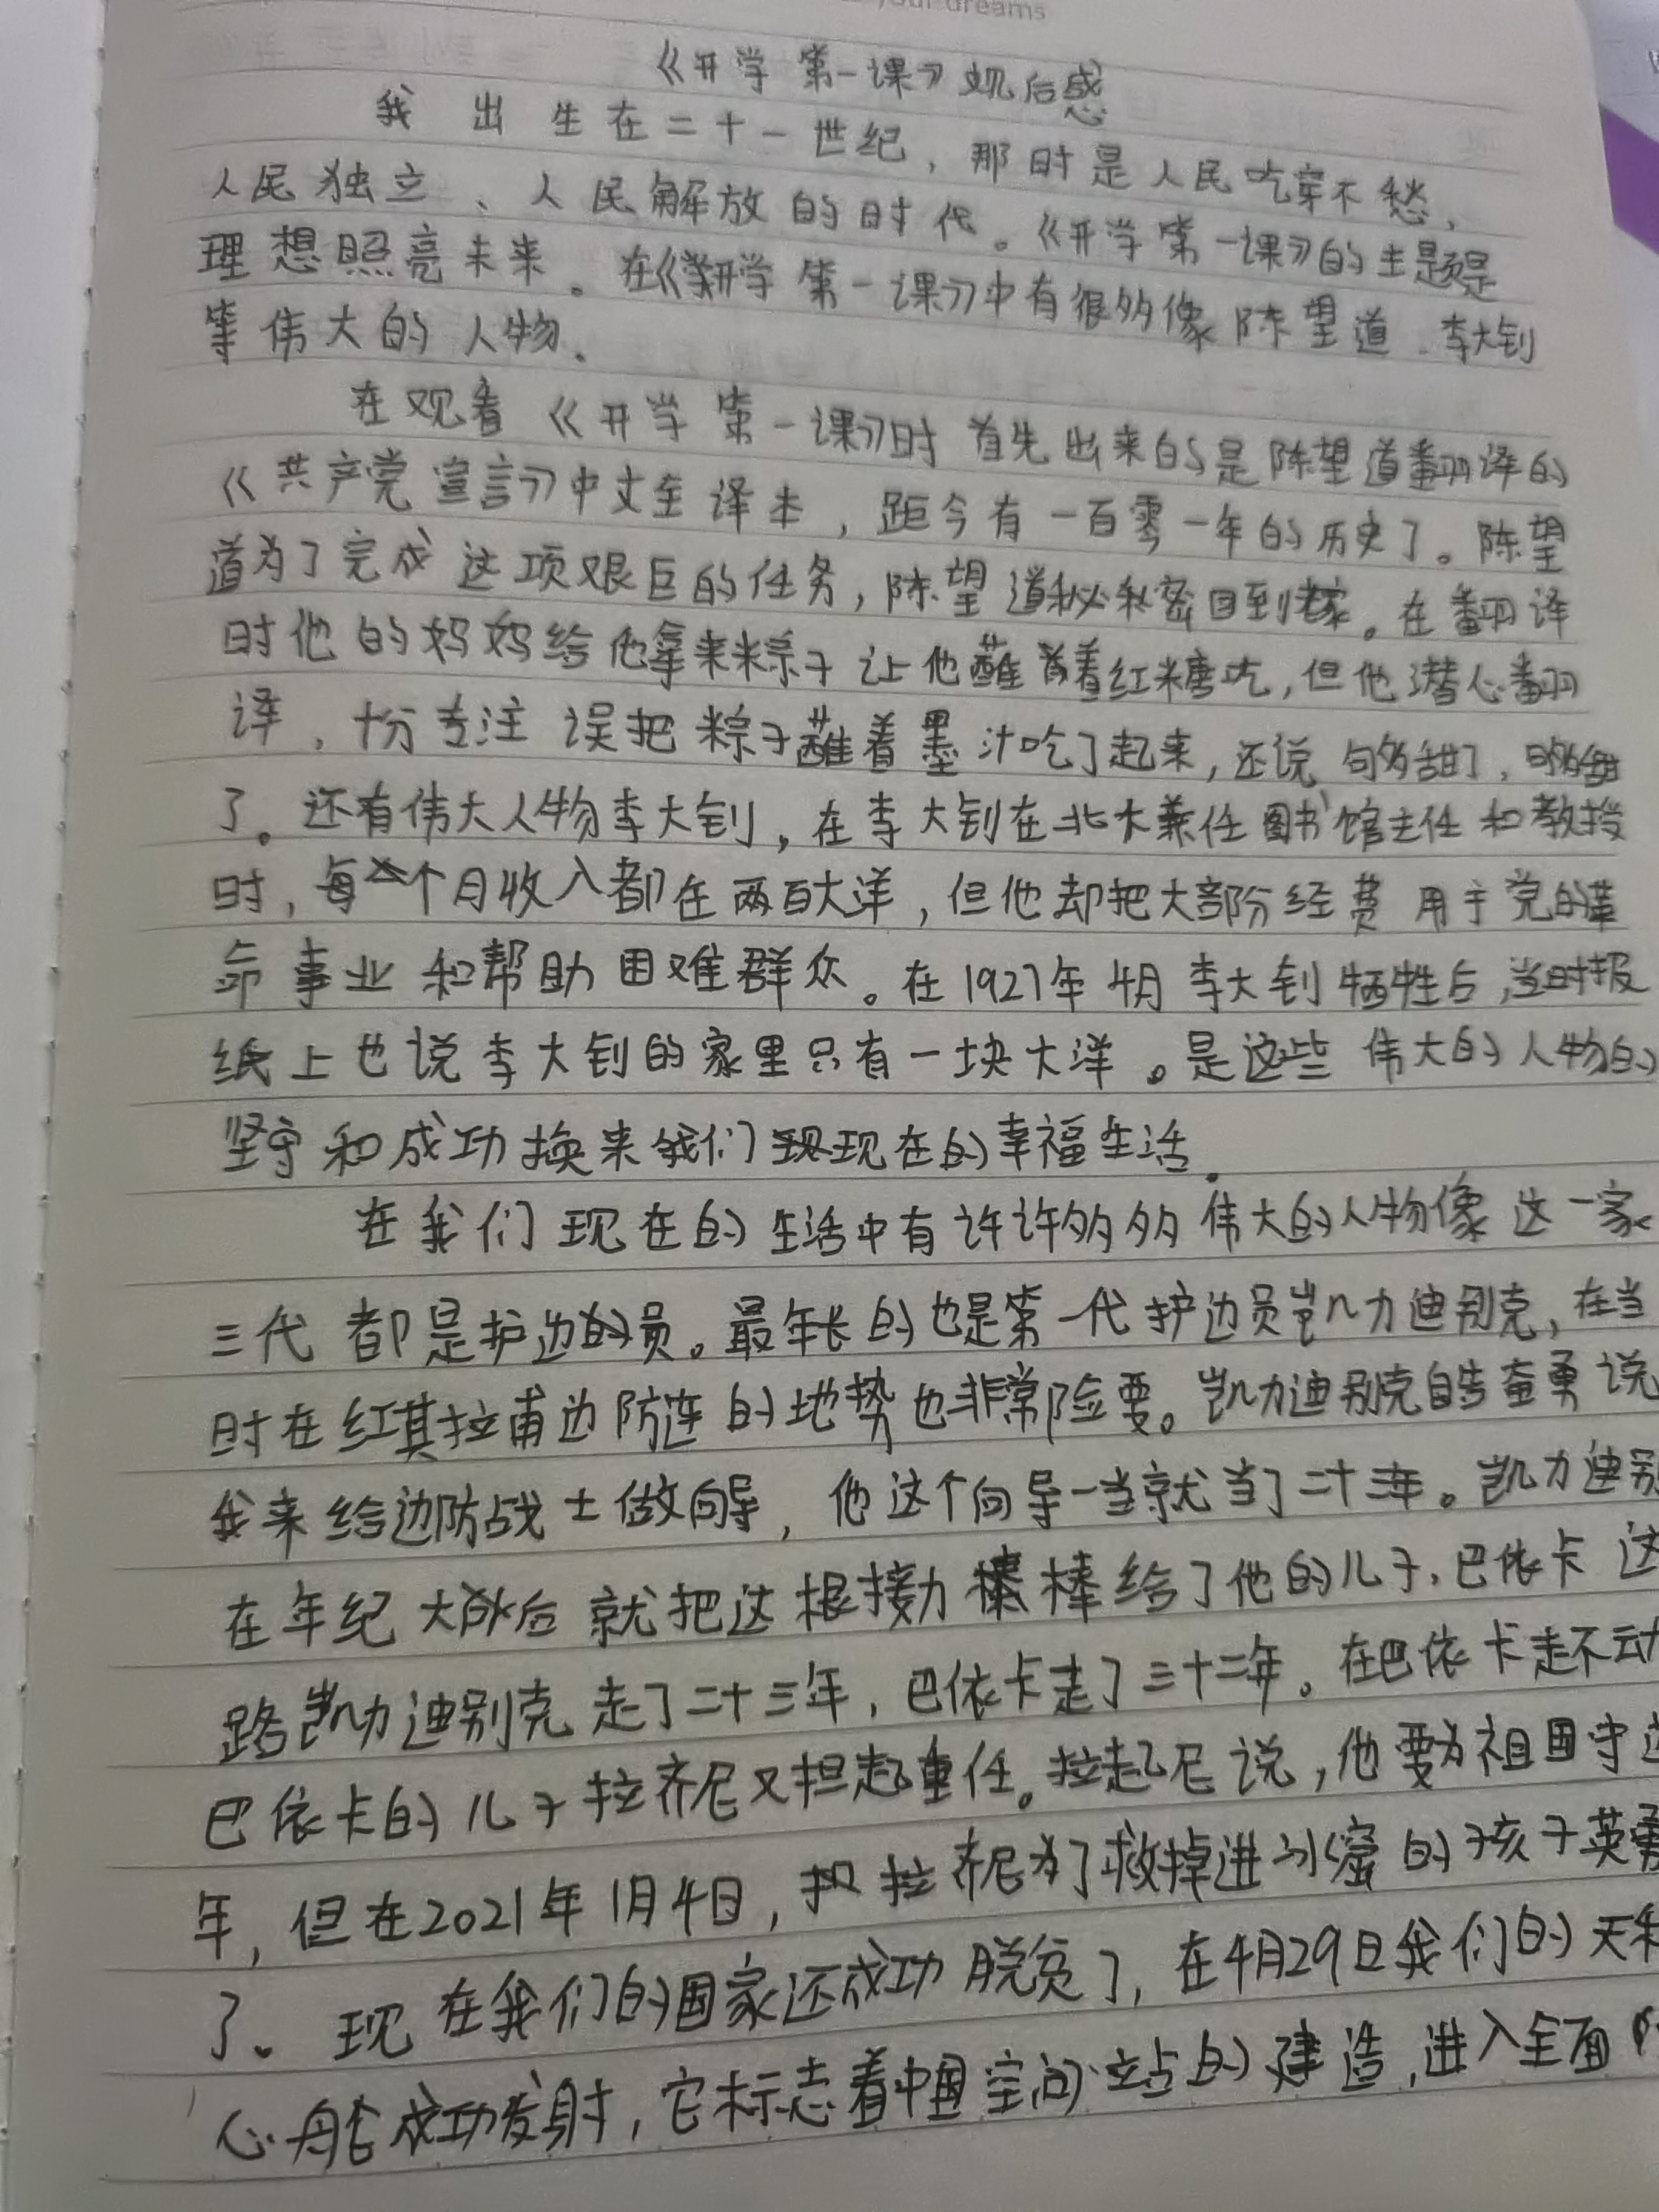 your dreams
《开学第一课》观后感
我出生在二十一世纪，那时是人民吃穿不愁，
人民独立、人民解放的时代。《开学第一课》的主题是
理想照亮未来。在《开学第一课》中有很多像陈望道、李大钊
等伟大的人物.
在观看《开学第一课》时首先出来的是陈望道翻译的
《共产党宣言》中文全译本，距今有一百零一年的历史了。陈望
道为了完成这项艰巨的任务，陈望道秘密回到家。在翻译
时他的妈妈给他拿来粽子让他蘸着红糖吃，但他潜心翻
译，十分专注误把粽子蘸着墨汁吃了起来，还说够甜了，够甜
了。还有伟大人物李大钊，在李大钊在北大兼任图书馆主任和教授
时，每个月收入都在两百大洋，但他却把大部分经费用于党的革
命事业和帮助困难群众。在1927年4月李大钊牺牲后，当时报
纸上也说李大钊的家里只有一块大洋。是这些伟大的人物的
坚守和成功换来我们现在的幸福生活.
在我们现在的生活中有许许多多伟大的人物像这一家
三代都是护边员。最年长的也是第一代护边员凯力迪别克，在当
时在红其拉甫边防连的地势也非常险要。凯力迪别克自告奋勇说
我来给边防战士做向导，他这个向导一当就当了二十三年。凯力迪别
在年纪大以后就把这根接力棒给了他的儿子，巴依卡这
路凯力迪别克走了二十三年，巴依卡走了三十二年。在巴依卡走不动
巴依卡的儿子拉齐尼又担起重任。拉起尼说，他要为祖国守
年，但在2021年1月4日，拉齐尼为了救掉进冰窟的孩子英勇
了。现在我们的国家还成功脱贫了，在4月29日我们的天和
心舱成功发射，它标志着中国空间立占的建造，进入全面